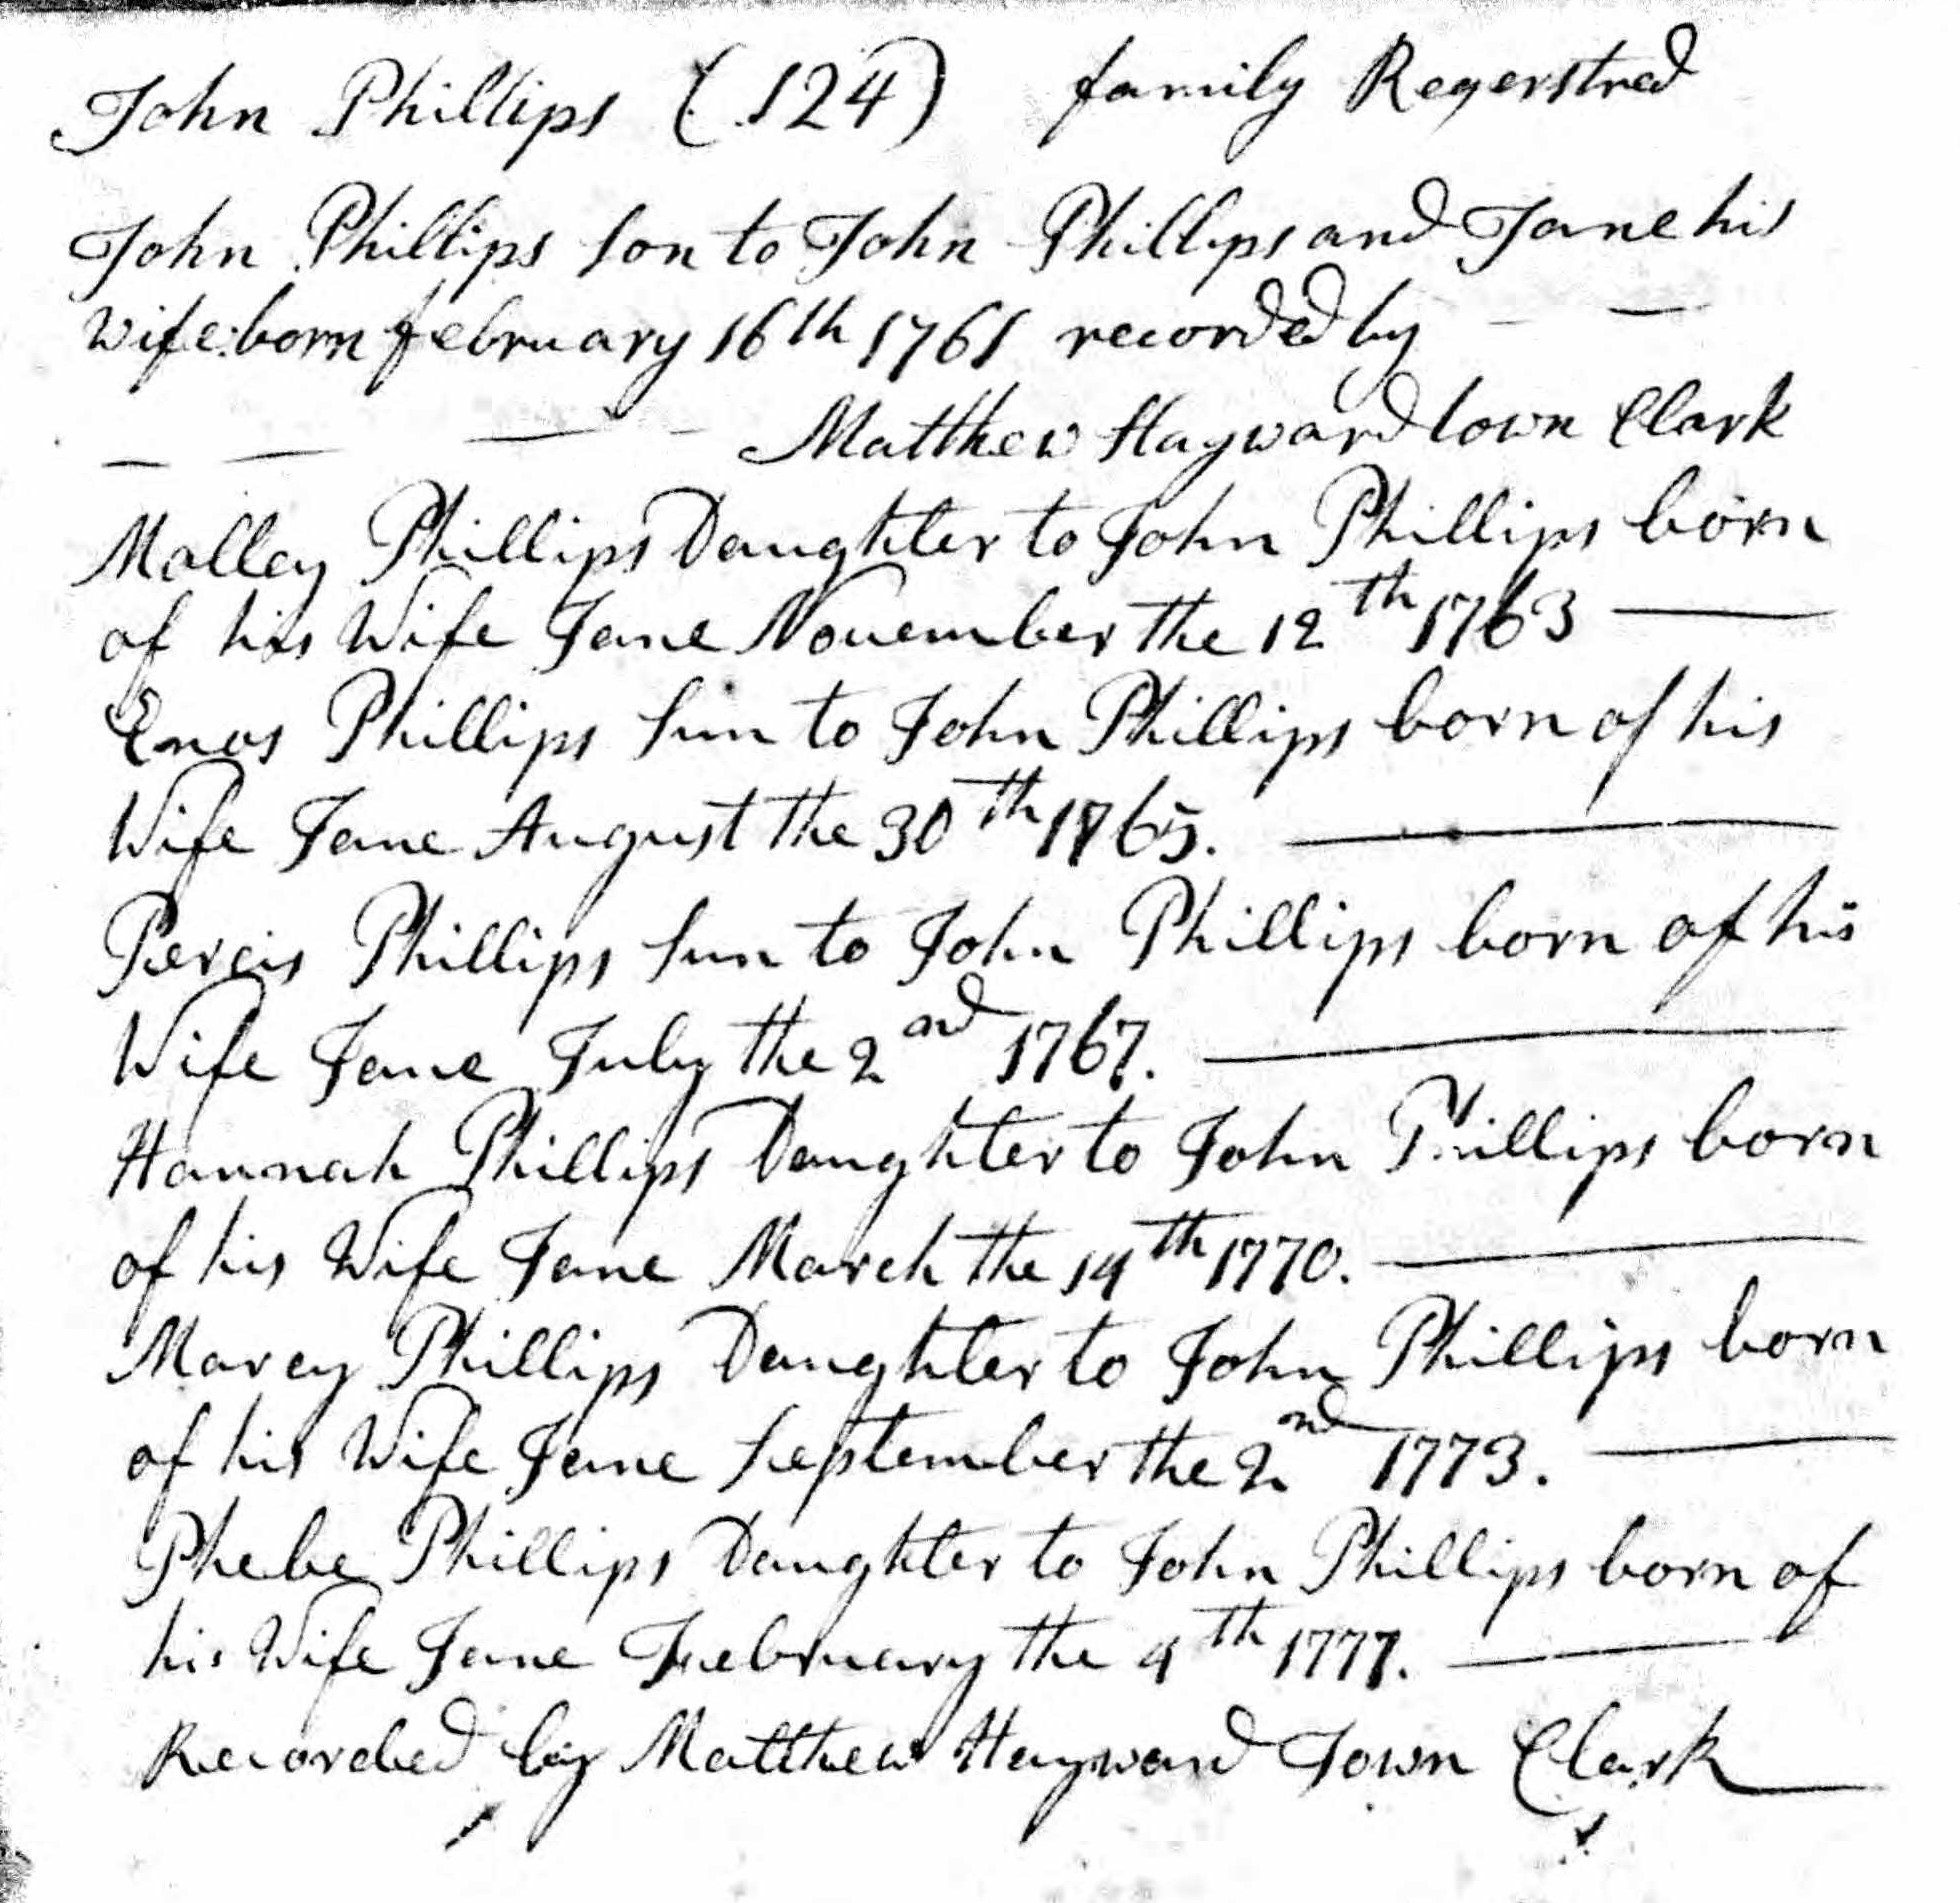 John Phillips (124) family Regerstred
John Phillips Son to John Phillips and Jane his
wife: born february 16th 1761 recorded by — —
— — — - Matthew Hayward town Clark
Molley Phillips Daughter to John Phillips born
of his Wife Jane November the 12th 1763 —
Enos Phillips Sun to John Phillips born of his
Wife Jane August the 30th 1765. —
Percis Phillips Sun to John Phillips born of his
Wife Jane July the 2nd 1767. —
Hannah Phillips Daughter to John Phillips born
of his Wife Jane March the 14th 1770. —
Marey Phillips Daughter to John Phillips born
of his Wife Jane September the 2nd 1773. —
Phebe Phillips Daughter to John Phillips born of
his Wife Jane February the 4th 1777. —
Recorded by Matthew Hayward Town Clark